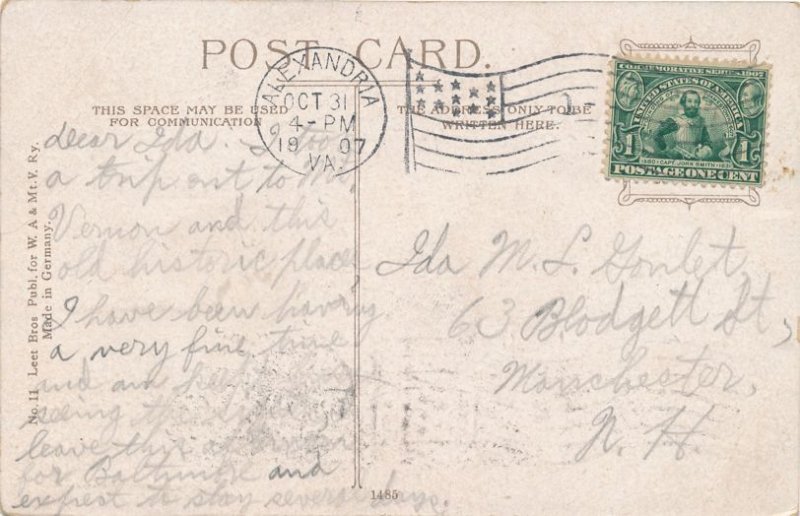 POST CARD.
THIS SPACE MAY BE USED
FOR COMMUNICATION
THE ADDRESS ONLY TO BE
WRITTEN HERE.
ALEXANDRIA
OCT 31
4-PM
1907
VA.
COMMEMORATIVE SERIES 1907
UNITED STATES OF AMERICA
1580 CAPT. JOHN SMITH 1631
1 1
POSTAGE ONE CENT
No. 11 Leet Bros Publ. for W. A & Mt. V. Ry.
Made in Germany.
dear Ida. I took
a trip out to Mt,
Vernon and this
old historic place
I have been having
a very fine time
and am
seeing the
leave this
for Baltimore and
expect to stay several days.
Ida M. L.
63 Blodgett St,
Manchester,
N. H.
1485